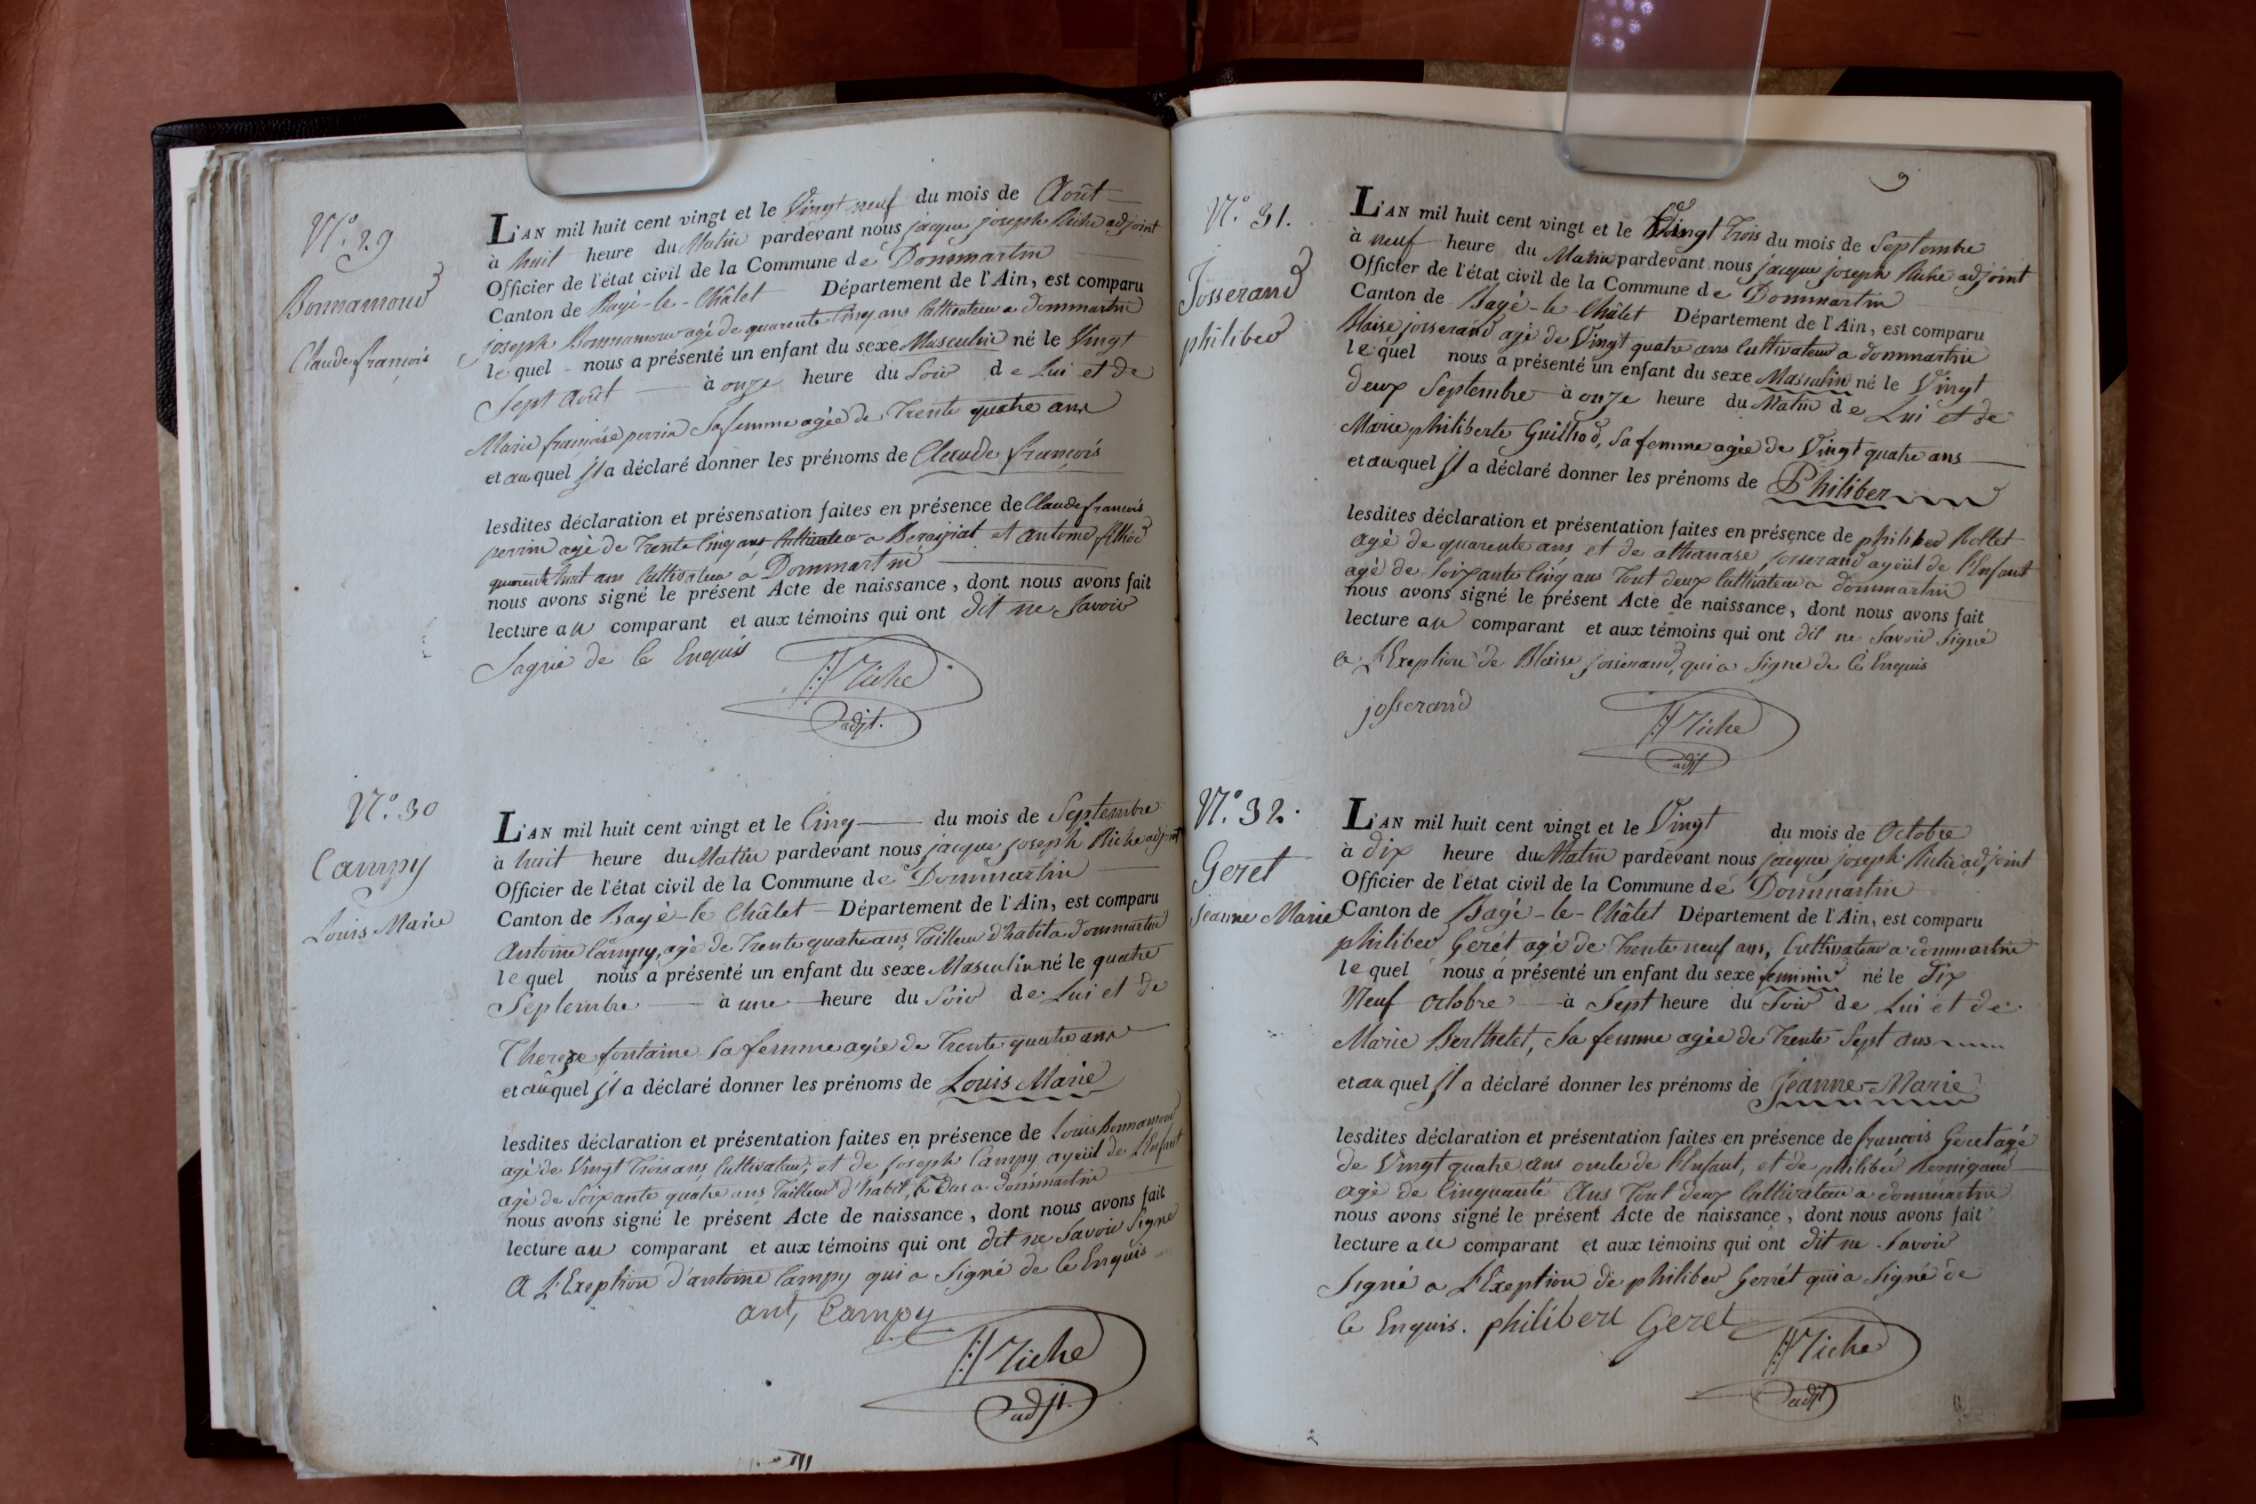 N.o 29
Bonnamour
Claude françois
L'AN mil huit cent vingt et le Vingt neuf du mois de Août
à huit heure du Matin pardevant nous jacque joseph Riche adjoint
Officier de l'état civil de la Commune de Dommartin
Canton de Bagé-le-Châlet Département de l'Ain, est comparu
joseph Bonnamour agé de quarente Cinq ans Cultivateur a dommartin
le quel nous a présenté un enfant du sexe Masculin né le Vingt
Sept Août à onze heure du Soir de Lui et de
Marie françoise perrin Sa femme agée de Trente quatre ans
et au quel jl a déclaré donner les prénoms de Claude françois
lesdites déclaration et présensation faites en présence de Claude francois
perrin agé de Trente Cinq ans Cultivateur a et antoine
quarente huit ans Cultivateur a Dommartin
nous avons signé le présent Acte de naissance, dont nous avons fait
lecture au comparant et aux témoins qui ont dit ne Savoir
Signé de Ce Enquis
Riche
adjt.
N.o 30
Campy
Louis Marie
L'AN mil huit cent vingt et le Cinq du mois de Septembre
à huit heure du Matin pardevant nous jacque joseph Riche adjoint
Officier de l'état civil de la Commune de Dommartin
Canton de Bagé-le Châlet Département de l'Ain, est comparu
Antoine Campy, agé de Trente quatre ans, Tailleur d'habit a dommartin
le quel nous a présenté un enfant du sexe Masculin né le quatre
Septembre à une heure du Soir de Lui et de
Thereze fontaine Sa femme agée de Trente quatre ans
et au quel jl a déclaré donner les prénoms de Louis Marie
lesdites déclaration et présentation faites en présence de Louis Bonnamour
agé de Vingt Trois ans, Cultivateur, et de joseph Campy ayeül de l'Enfant
agé de Soixante quatre ans Tailleur d'habit, a dommartin
nous avons signé le présent Acte de naissance, dont nous avons fait
lecture au comparant et aux témoins qui ont dit ne Savoir Signé
A L'Exeption d'antoine Campy qui a Signé de Ce Enquis
ant, Campy
Riche
adjt.
9
N.o 31.
Josserand
philiber
L'AN mil huit cent vingt et le Vingt Trois du mois de Septembre
à neuf heure du Matin pardevant nous jacque joseph Riche adjoint
Officier de l'état civil de la Commune de Dommartin
Canton de Bagé-le-Châlet Département de l'Ain, est comparu
Blaise josserand agé de Vingt quatre ans Cultivateur a dommartin
le quel nous a présenté un enfant du sexe Masculin né le Vingt
deux Septembre à onze heure du Matin de Lui et de
Marie philiberte Guilhod, Sa femme agée de Vingt quatre ans
et au quel jl a déclaré donner les prénoms de Philiber
lesdites déclaration et présentation faites en présence de philiber Rollet
agé de quarente ans et de athanase josserand ayeül de l'Enfant
agé de Soixante Cinq ans Tout deux Cultivateur a dommartin
nous avons signé le présent Acte de naissance, dont nous avons fait
lecture au comparant et aux témoins qui ont dit ne Savoir Signé
a L'Exeption de Blaise josserand, qui a Signé de Ce Enquis
josserand
Riche
adjt
N.o 32.
Geret
jeanne Marie
L'AN mil huit cent vingt et le Vingt du mois de Octobre
à dix heure du Matin pardevant nous jacque joseph Riche adjoint
Officier de l'état civil de la Commune de Dommartin
Canton de Bagé-le-Châlet Département de l'Ain, est comparu
philiber Gerét agé de Trente neuf ans, Cultivateur a dommartin
le quel nous a présenté un enfant du sexe feminin né le Dix
Neuf octobre à Sept heure du Soir de Lui et de
Marie Berthelet, Sa femme agée de Trente Sept ans
et au quel jl a déclaré donner les prénoms de Jeanne-Marie
lesdites déclaration et présentation faites en présence de françois Geret agé
de Vingt quatre ans oncle de l'Enfant, et de philiber
agé de Cinquante Ans Tout deux Cultivateur a dommartin
nous avons signé le présent Acte de naissance, dont nous avons fait
lecture au comparant et aux témoins qui ont dit ne Savoir
Signé a L'Exeption de philiber Gerrét qui a Signé de
Ce Enquis. philibert Geret
Riche
adjt